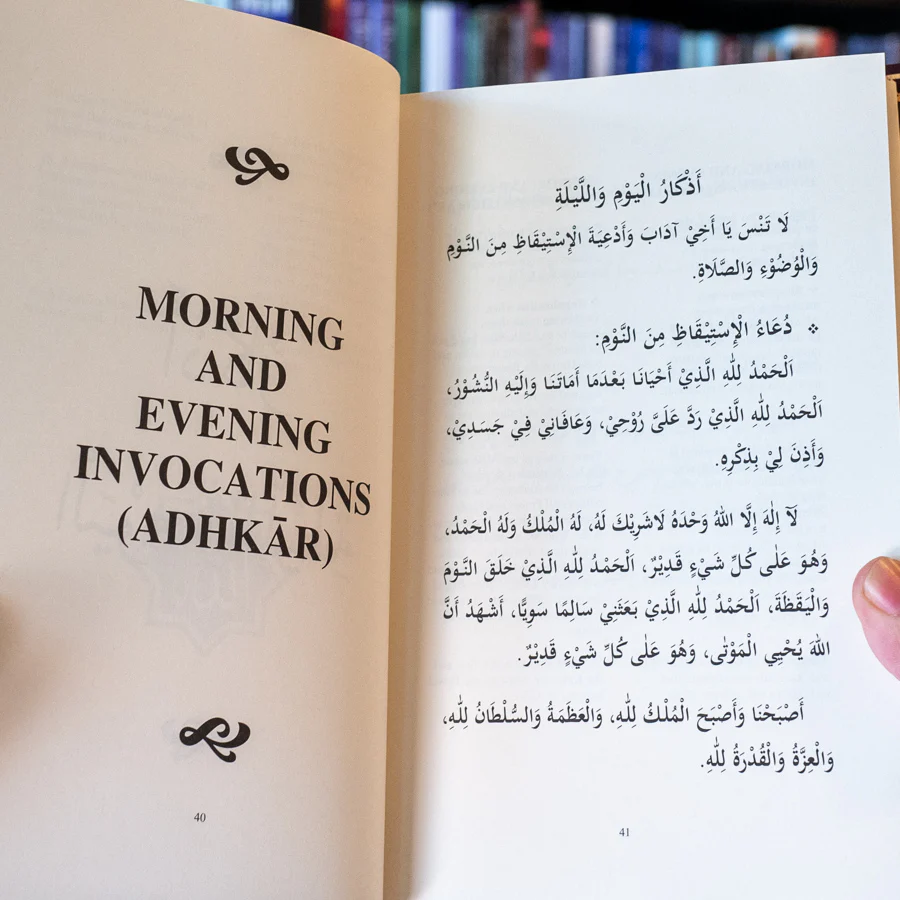 MORNING
AND
EVENING
INVOCATIONS
(ADHKĀR)
40
أَذْكَارُ الْيَوْمِ وَاللَّيْلَةِ
لَا تَنْسَ يَا أَخِيْ آدَابَ وَأَدْعِيَةَ الْإِسْتِيْقَاظِ مِنَ النَّوْمِ
وَالْوُضُوْءِ وَالصَّلَاةِ.
❖ دُعَاءُ الْإِسْتِيْقَاظِ مِنَ النَّوْمِ:
اَلْحَمْدُ لِلّٰهِ الَّذِيْ أَحْيَانَا بَعْدَمَا أَمَاتَنَا وَإِلَيْهِ النُّشُوْرُ،
اَلْحَمْدُ لِلّٰهِ الَّذِيْ رَدَّ عَلَيَّ رُوْحِيْ، وَعَافَانِيْ فِيْ جَسَدِيْ،
وَأَذِنَ لِيْ بِذِكْرِهِ.
لَآ إِلٰهَ إِلَّا اللهُ وَحْدَهُ لَاشَرِيْكَ لَهُ، لَهُ الْمُلْكُ وَلَهُ الْحَمْدُ،
وَهُوَ عَلٰى كُلِّ شَيْءٍ قَدِيْرٌ، اَلْحَمْدُ لِلّٰهِ الَّذِيْ خَلَقَ النَّوْمَ
وَالْيَقَظَةَ، اَلْحَمْدُ لِلّٰهِ الَّذِيْ بَعَثَنِيْ سَالِمًا سَوِيًّا، أَشْهَدُ أَنَّ
اللهَ يُحْيِي الْمَوْتٰى، وَهُوَ عَلٰى كُلِّ شَيْءٍ قَدِيْرٌ.
أَصْبَحْنَا وَأَصْبَحَ الْمُلْكُ لِلّٰهِ، وَالْعَظَمَةُ وَالسُّلْطَانُ لِلّٰهِ،
وَالْعِزَّةُ وَالْقُدْرَةُ لِلّٰهِ.
41